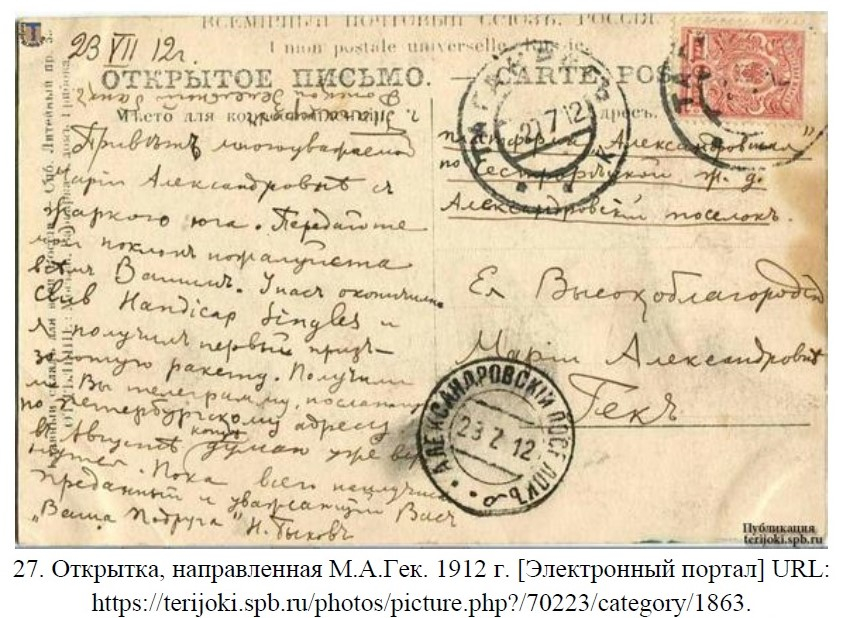 ВСЕМІРНЫЙ ПОЧТОВЫЙ СОЮЗЪ. РОССІЯ.
Union postale universelle. Russie.
23 VII 12 г.
ОТКРЫТОЕ ПИСЬМО. — CARTE POS
Мѣсто для
дресъ.
Привѣтъ многоуважаемой
Маріи Александровнѣ съ
жаркого юга. Передайте
мой поклонъ пожалуйста
всѣмъ Вашимъ. У насъ окончились
Club Handicap Singles и
я получилъ первый призъ—
золотую ракету. Получили
ли Вы телеграмму, посланную
по Петербургскому адресу
въ Августѣ думаю уже
Пока всего наилучшаго
преданный и уважающій Васъ
„Ваша Подруга" Н. Быковъ
платформа „Александровская"
по Сестрорѣцкой ж. д.
Александровскій поселокъ.
Ея Высокоблагородію
Маріи Александровнѣ
Гекъ
23 7 12
АЛЕКСАНДРОВСКІЙ ПОСЕЛОКЪ
23 7 12
Публикация
terijoki.spb.ru
27. Открытка, направленная М.А.Гек. 1912 г. [Электронный портал] URL:
https://terijoki.spb.ru/photos/picture.php?/70223/category/1863.